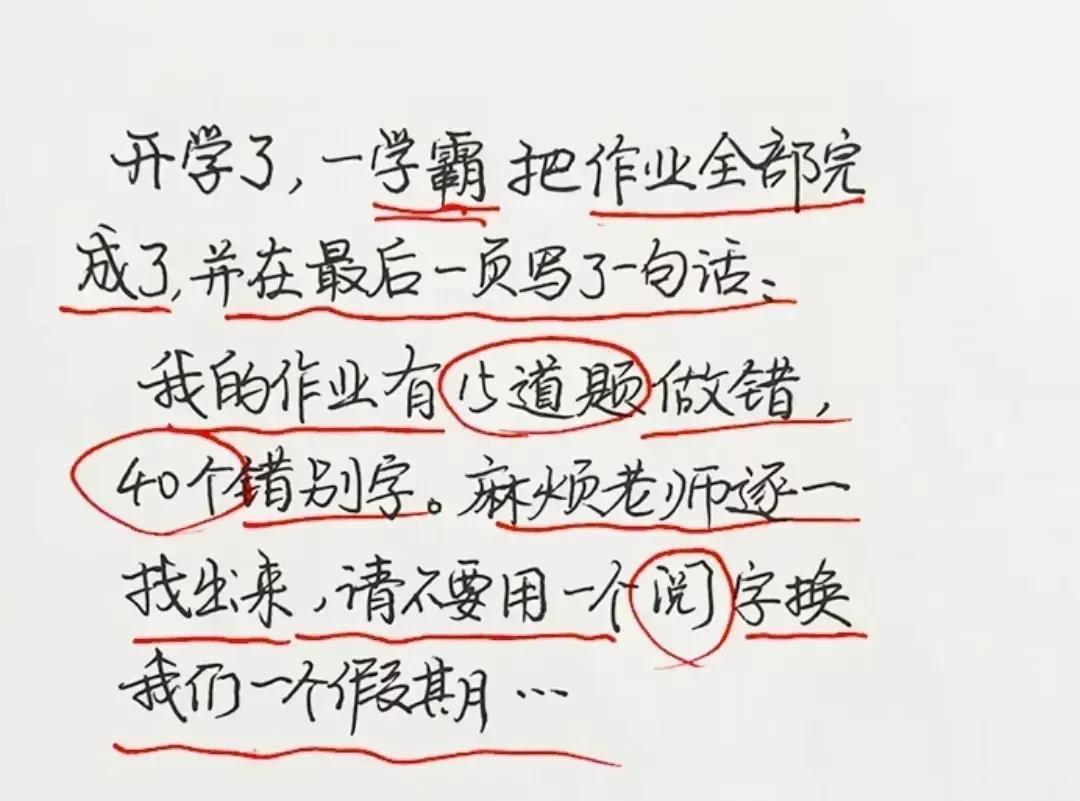 开学了，一学霸把作业全部完
成了，并在最后一页写了一句话：
我的作业有15道题做错，
40个错别字。麻烦老师逐一
找出来，请不要用一个阅字换
我们一个假期…